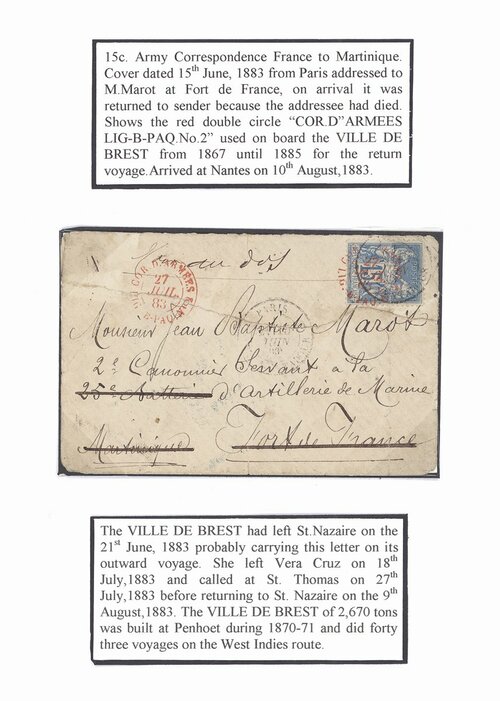 15c. Army Correspondence France to Martinique.
Cover dated 15th June, 1883 from Paris addressed to
M.Marot at Fort de France, on arrival it was
returned to sender because the addressee had died.
Shows the red double circle “COR.D”ARMEES
LIG-B-PAQ.No.2” used on board the VILLE DE
BREST from 1867 until 1885 for the return
voyage.Arrived at Nantes on 10th August,1883.
Voir au dos
COR. D. ARMEES
27
JUIL.
83
15
PARIS
JUIN
Monsieur Jean Baptiste Marot
2e Canonnier Servant à la
25e Batterie d'Artillerie de Marine
Martinique Fort de France
The VILLE DE BREST had left St.Nazaire on the
21st June, 1883 probably carrying this letter on its
outward voyage. She left Vera Cruz on 18th
July,1883 and called at St. Thomas on 27th
July,1883 before returning to St. Nazaire on the 9th
August,1883. The VILLE DE BREST of 2,670 tons
was built at Penhoet during 1870-71 and did forty
three voyages on the West Indies route.